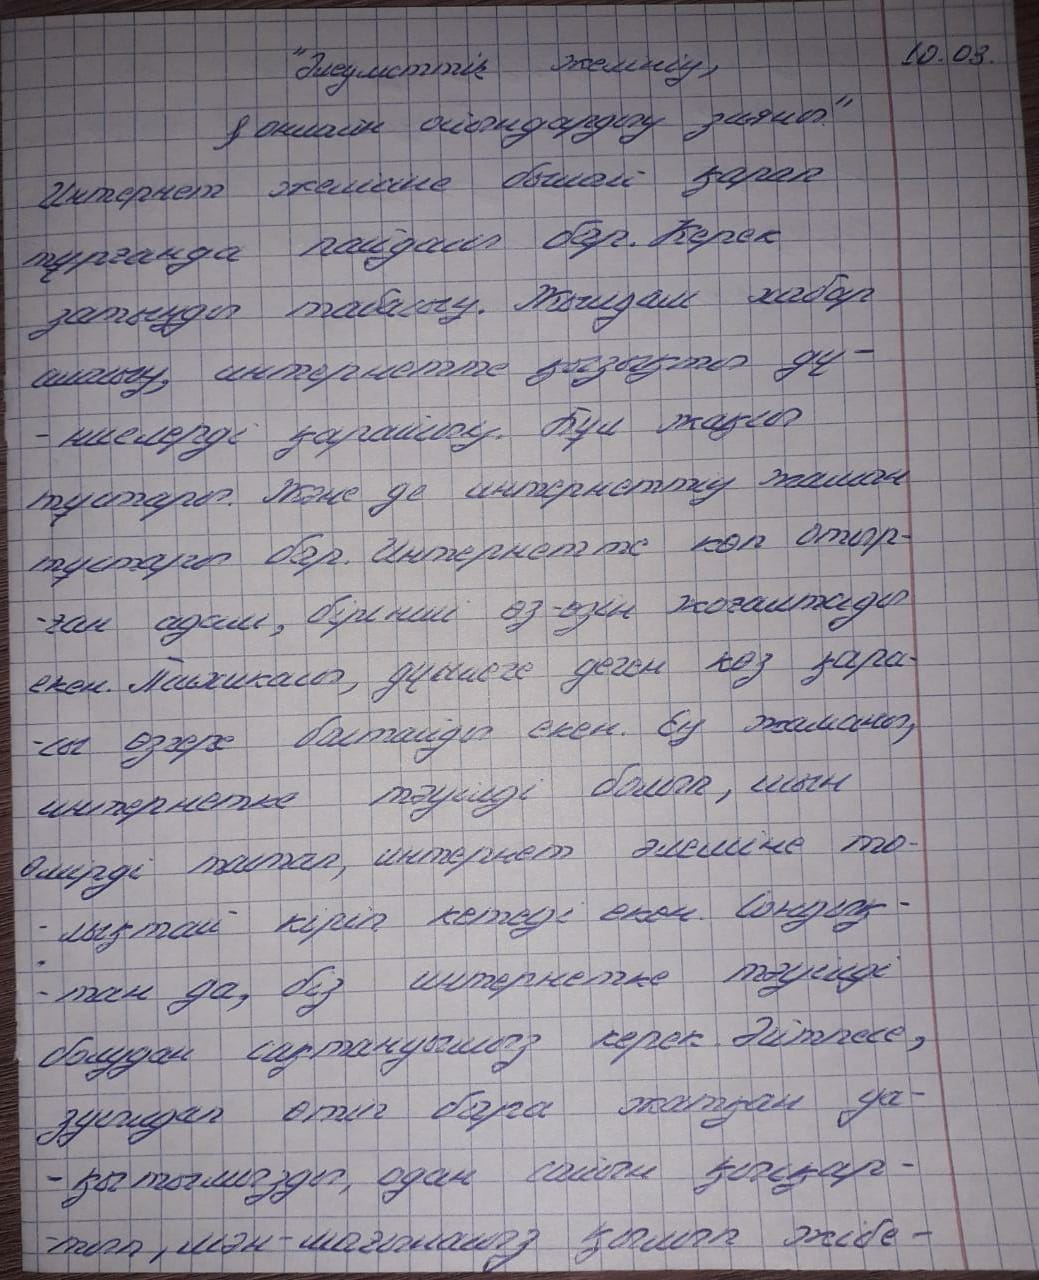 "Әлеуметтік желінің, 10.03.
онлайн ойындардың зияны."
Интернет желіңіне былай қарап
тұрғанда пайдасы бар. Керек
затыңды табасың. Жылдам хабар
аласың, интернетте қызықты дү-
-ниелерді қарайсың. Бұл жақсы
тұстары. Және де интернеттің жаман
тұстары бар. Интернетте көп отыр-
-ған адам, бірінші өз-өзін жоғалтады
екен. Психикасы, дүниеге деген көз қара-
-сы өзгере бастайды екен. Ең жаманы,
интернетке тәуелді болып, шын
өмірді тастап, интернет әлеміне то-
-лықтай кіріп кетеді екен. Сондық-
-тан да, біз интернетке тәуелді
болудан сақтануымыз керек. Әйтпесе,
зулидап өтіп бара жатқан уа-
-қытымызды, одан сайын қысқар-
-тып, мән-мағынасыз қылып жібе-